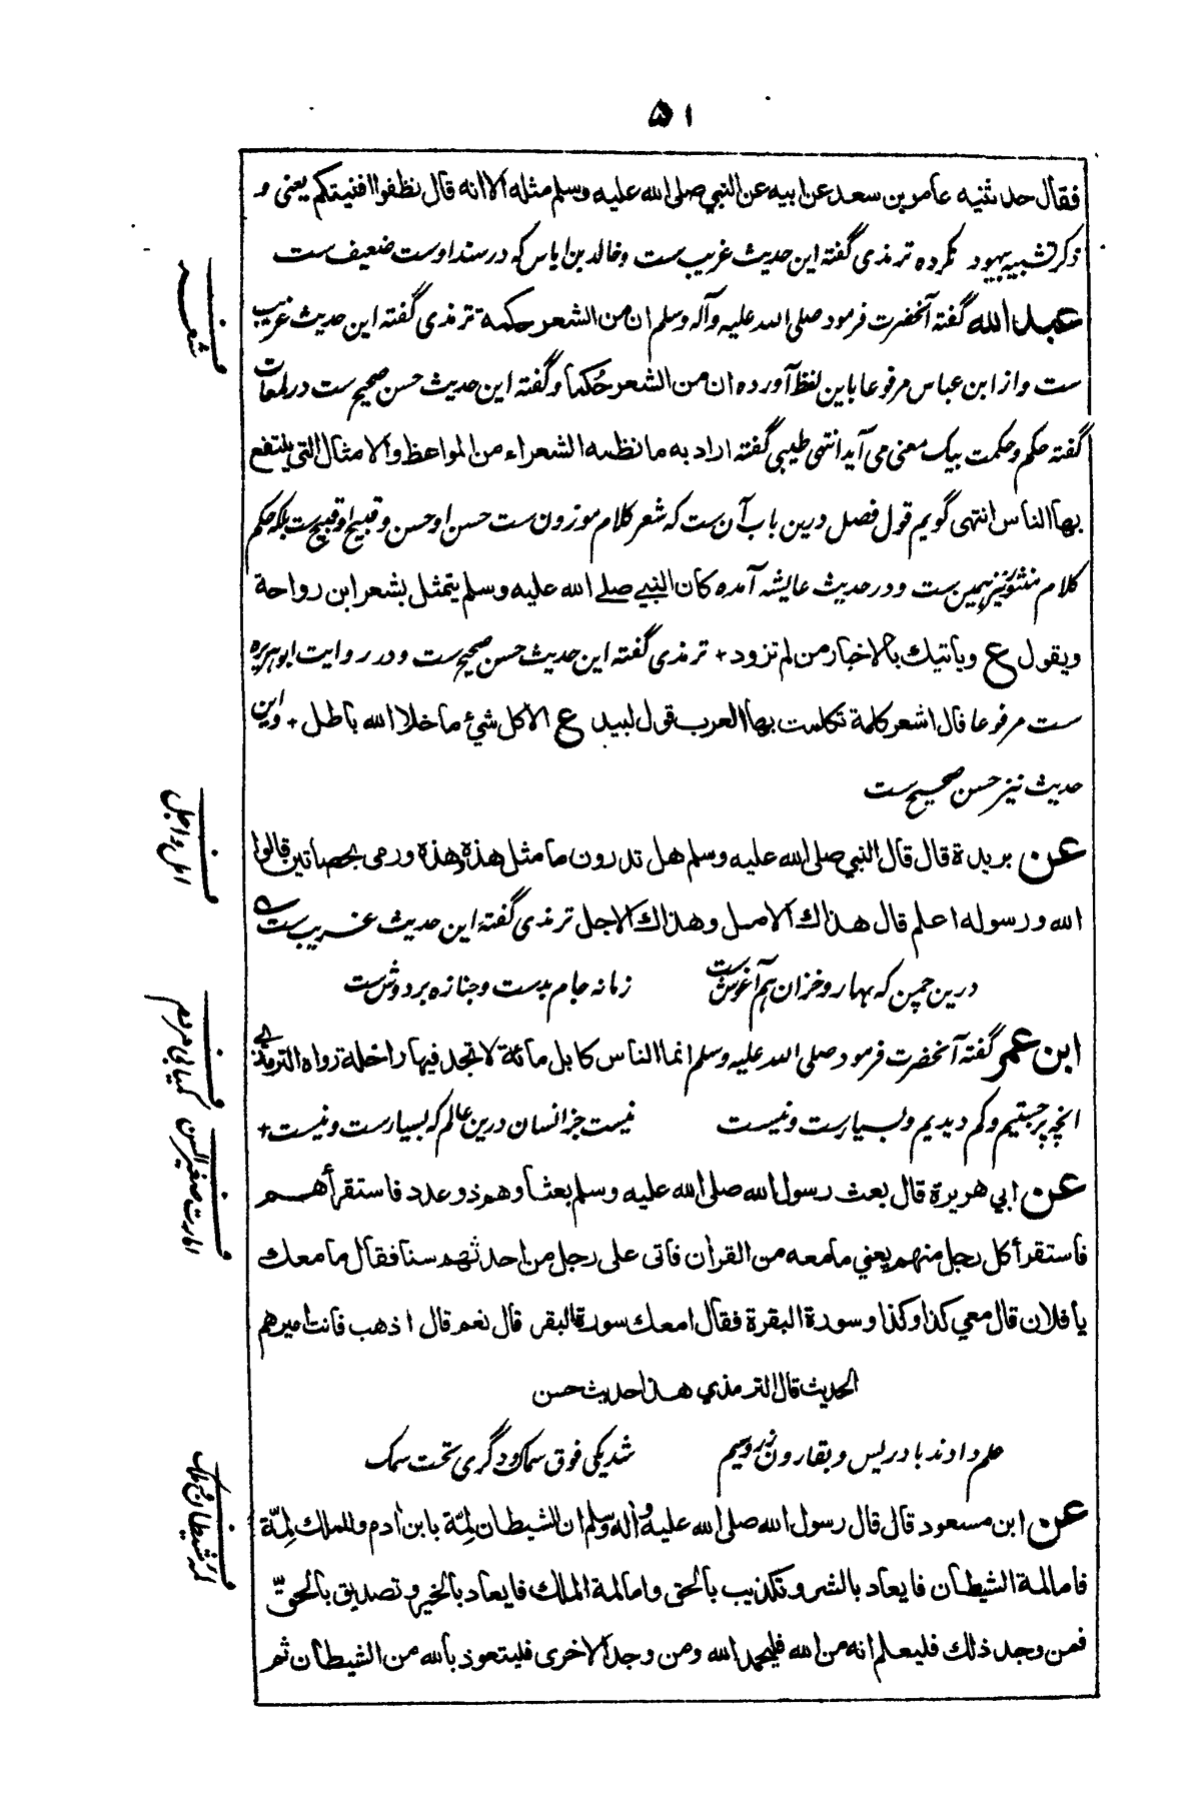 ۵۱
فقال حدثنيه عامر بن سعد عن ابيه عن النبي صلى الله عليه وسلم مثله الا انه قال نظفوا افنيتكم يعنى و
ذكر تشبيه بيهود نکرده ترمذی گفته این حدیث غریب ست و خالد بن ایاس که در سند اوست ضعیف ست
عبد الله گفته آنحضرت فرمود صلی الله علیه وآله وسلم ان من الشعر حكمة ترمذی گفته این حدیث غریب
ست و از ابن عباس مرفوعا باین لفظ آورده ان من الشعر حُكما و گفته این حدیث حسن صحیح ست در لمعات
گفته حکم و حکمت بیک معنی می آید انتهی طیبی گفته اراد به ما نظمه الشعراء من المواعظ والامثال التى ينتفع
بها الناس انتهی گویم قول فصل درین باب آن ست که شعر کلام موزون ست حسن او حسن و قبیح او قبیح ست بلکه حکم
کلام منثور نیز همین ست و در حدیث عایشه آمده كان النبي صلے الله عليه وسلم يتمثل بشعر ابن رواحة
ويقول ع ويأتيك بالاخبار من لم تزود + ترمذی گفته این حدیث حسن صحیح ست و در روایت ابو هریره
ست مرفوعا قال اشعر كلمة تكلمت بها العرب قول لبيد ع الا كل شئ ما خلا الله باطل + واین
حدیث نیز حسن صحیح ست
عن بريدة قال قال النبي صلى الله عليه وسلم هل تدرون ما مثل هذه وهذه ورمى بحصاتين قالوا
الله ورسوله اعلم قال هذاك الامل وهذاك الاجل ترمذی گفته این حدیث غریب ست ه
درین چمن که بهار و خزان هم آغوش ست زمانه جام بدست و جنازه بر دوش ست
ابن عمر گفته آنحضرت فرمود صلی الله علیه وسلم انما الناس كابل مائة لا تجد فيها راحلة رواه الترمذي
انچه پر جستیم و کم دیدیم و بسیارست و نیست نیست جز انسان درین عالم که بسیارست و نیست +
عن ابي هريرة قال بعث رسول الله صلى الله عليه وسلم بعثا وهم ذو عدد فاستقرأهم
فاستقرأ كل رجل منهم يعني ما معه من القرآن فاتى على رجل من احدثهم سنا فقال ما معك
يا فلان قال معي كذا وكذا وسورة البقرة فقال امعك سورة البقر قال نعم قال اذهب فانت اميرهم
الحديث قال الترمذي هذا حديث حسن
علم دادند بادریس و بقارون زر و سیم شد یکی فوق سماک و دگری تحت سمک
عن ابن مسعود قال قال رسول الله صلى الله عليه وآله وسلم ان للشيطان لمة بابن آدم وللملك لمة
فاما لمة الشيطان فايعاد بالشر وتكذيب بالحق واما لمة الملك فايعاد بالخير وتصديق بالحق
فمن وجد ذلك فليعلم انه من الله فليحمد الله ومن وجد الاخرى فليتعوذ بالله من الشيطان ثم
شعر
امل و اجل
کمیابی مردم
امارت صغیر السن
لمۀ شیطان و ملک